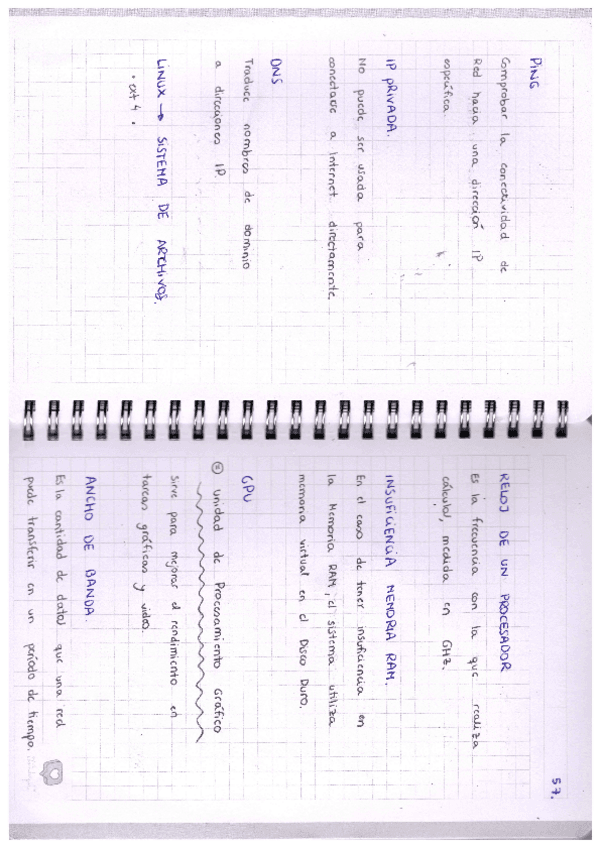 PING
Comprobar la conectividad de
Red hacia una dirección IP
específica.
IP PRIVADA.
No puede ser usada para
conectarse a Internet directamente.
DNS
Traduce nombres de dominio
a direcciones IP.
LINUX → SISTEMA DE ARCHIVOS.
• ext 4 •
57.
RELOJ DE UN PROCESADOR
Es la frecuencia con la que realiza
cálculos, medida en GHz.
INSUFICIENCIA MEMORIA RAM.
En el caso de tener insuficiencia en
la Memoria RAM, el sistema utiliza
memoria virtual en el Disco Duro.
GPU
= Unidad de Procesamiento Gráfico
Sirve para mejorar el rendimiento en
tareas gráficas y video.
ANCHO DE BANDA.
Es la cantidad de datos que una red
puede transferir en un período de tiempo.